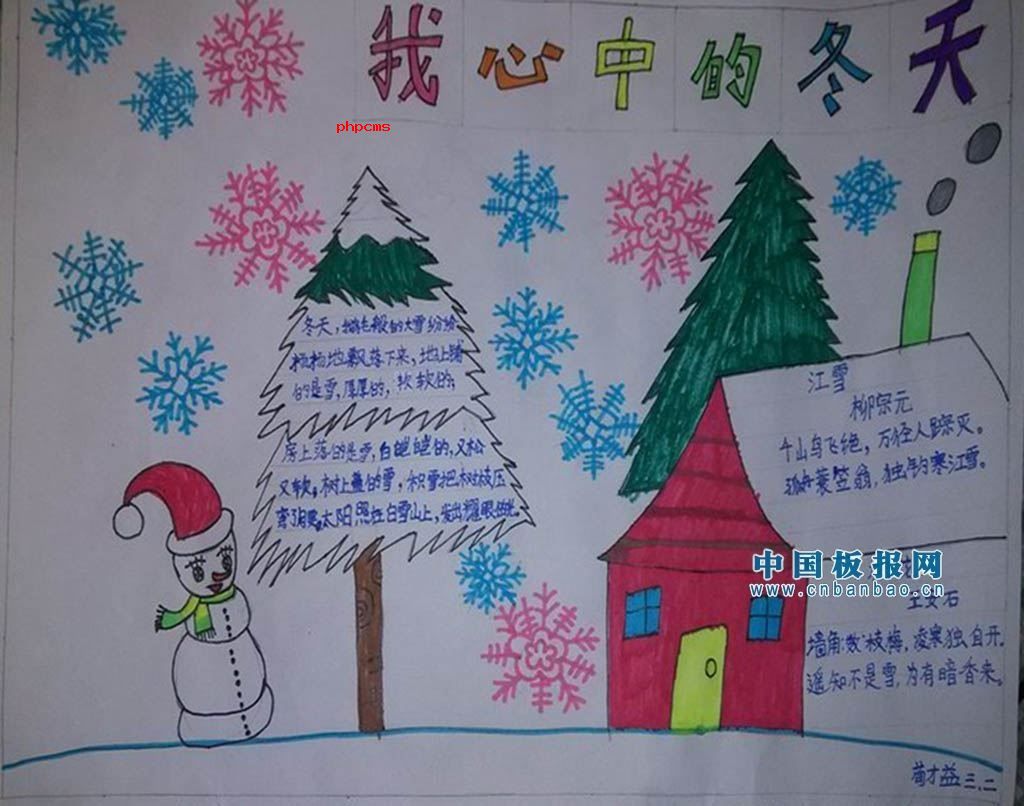 我心中的冬天
phpcms
冬天，鹅毛般的大雪纷纷
扬扬地飘落下来，地上铺
的是雪，厚厚的，软软的；
房上落的是雪，白皑皑的，又松
又软。树上盖的雪，积雪把树枝压
弯了腰。太阳照在白雪山上，发出耀眼的光。
江雪
柳宗元
千山鸟飞绝，万径人踪灭。
孤舟蓑笠翁，独钓寒江雪。
中国板报网
www.cnbanbao.cn
王安石
墙角数枝梅，凌寒独自开。
遥知不是雪，为有暗香来。
才益 三、二